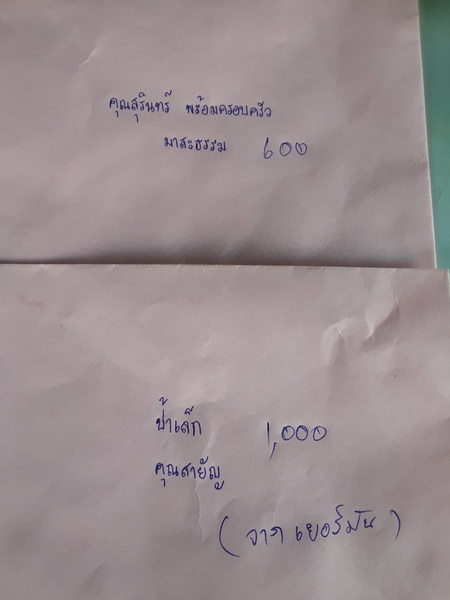 คุณสุรินทร์ พร้อมครอบครัว
มาสะธรรม 600
ป้าเล็ก 1,000
คุณสายัญ
(จาก เยอร์มัน)